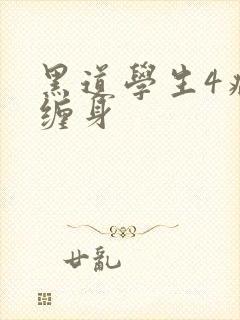 黑道學生4
缠身
廿亂